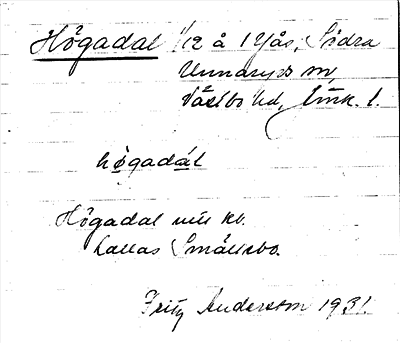 Högadal 1/12 å 1 Yås, Södra
Unnaryds sn,
Västbo hd, Jönk. l.
högadál
Högadal enl. kb.
kallas Smålsbo.
Fritz Andersson 1931.